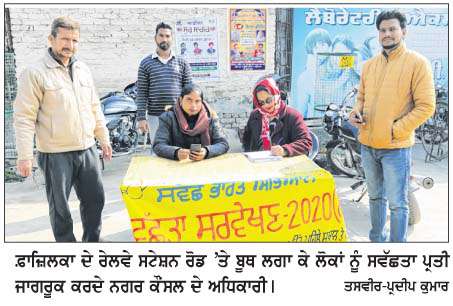 ਲੈਬੋਰੇਟਰੀ
ਸਵਛ ਭਾਰਤ ਮਿਸ਼ਨ
ਸਵੱਛਤਾ ਸਰਵੇਖਣ-2020
ਫ਼ਾਜ਼ਿਲਕਾ ਦੇ ਰੇਲਵੇ ਸਟੇਸ਼ਨ ਰੋਡ 'ਤੇ ਬੂਥ ਲਗਾ ਕੇ ਲੋਕਾਂ ਨੂੰ ਸਵੱਛਤਾ ਪ੍ਰਤੀ
ਜਾਗਰੂਕ ਕਰਦੇ ਨਗਰ ਕੌਂਸਲ ਦੇ ਅਧਿਕਾਰੀ।
ਤਸਵੀਰ-ਪ੍ਰਦੀਪ ਕੁਮਾਰ